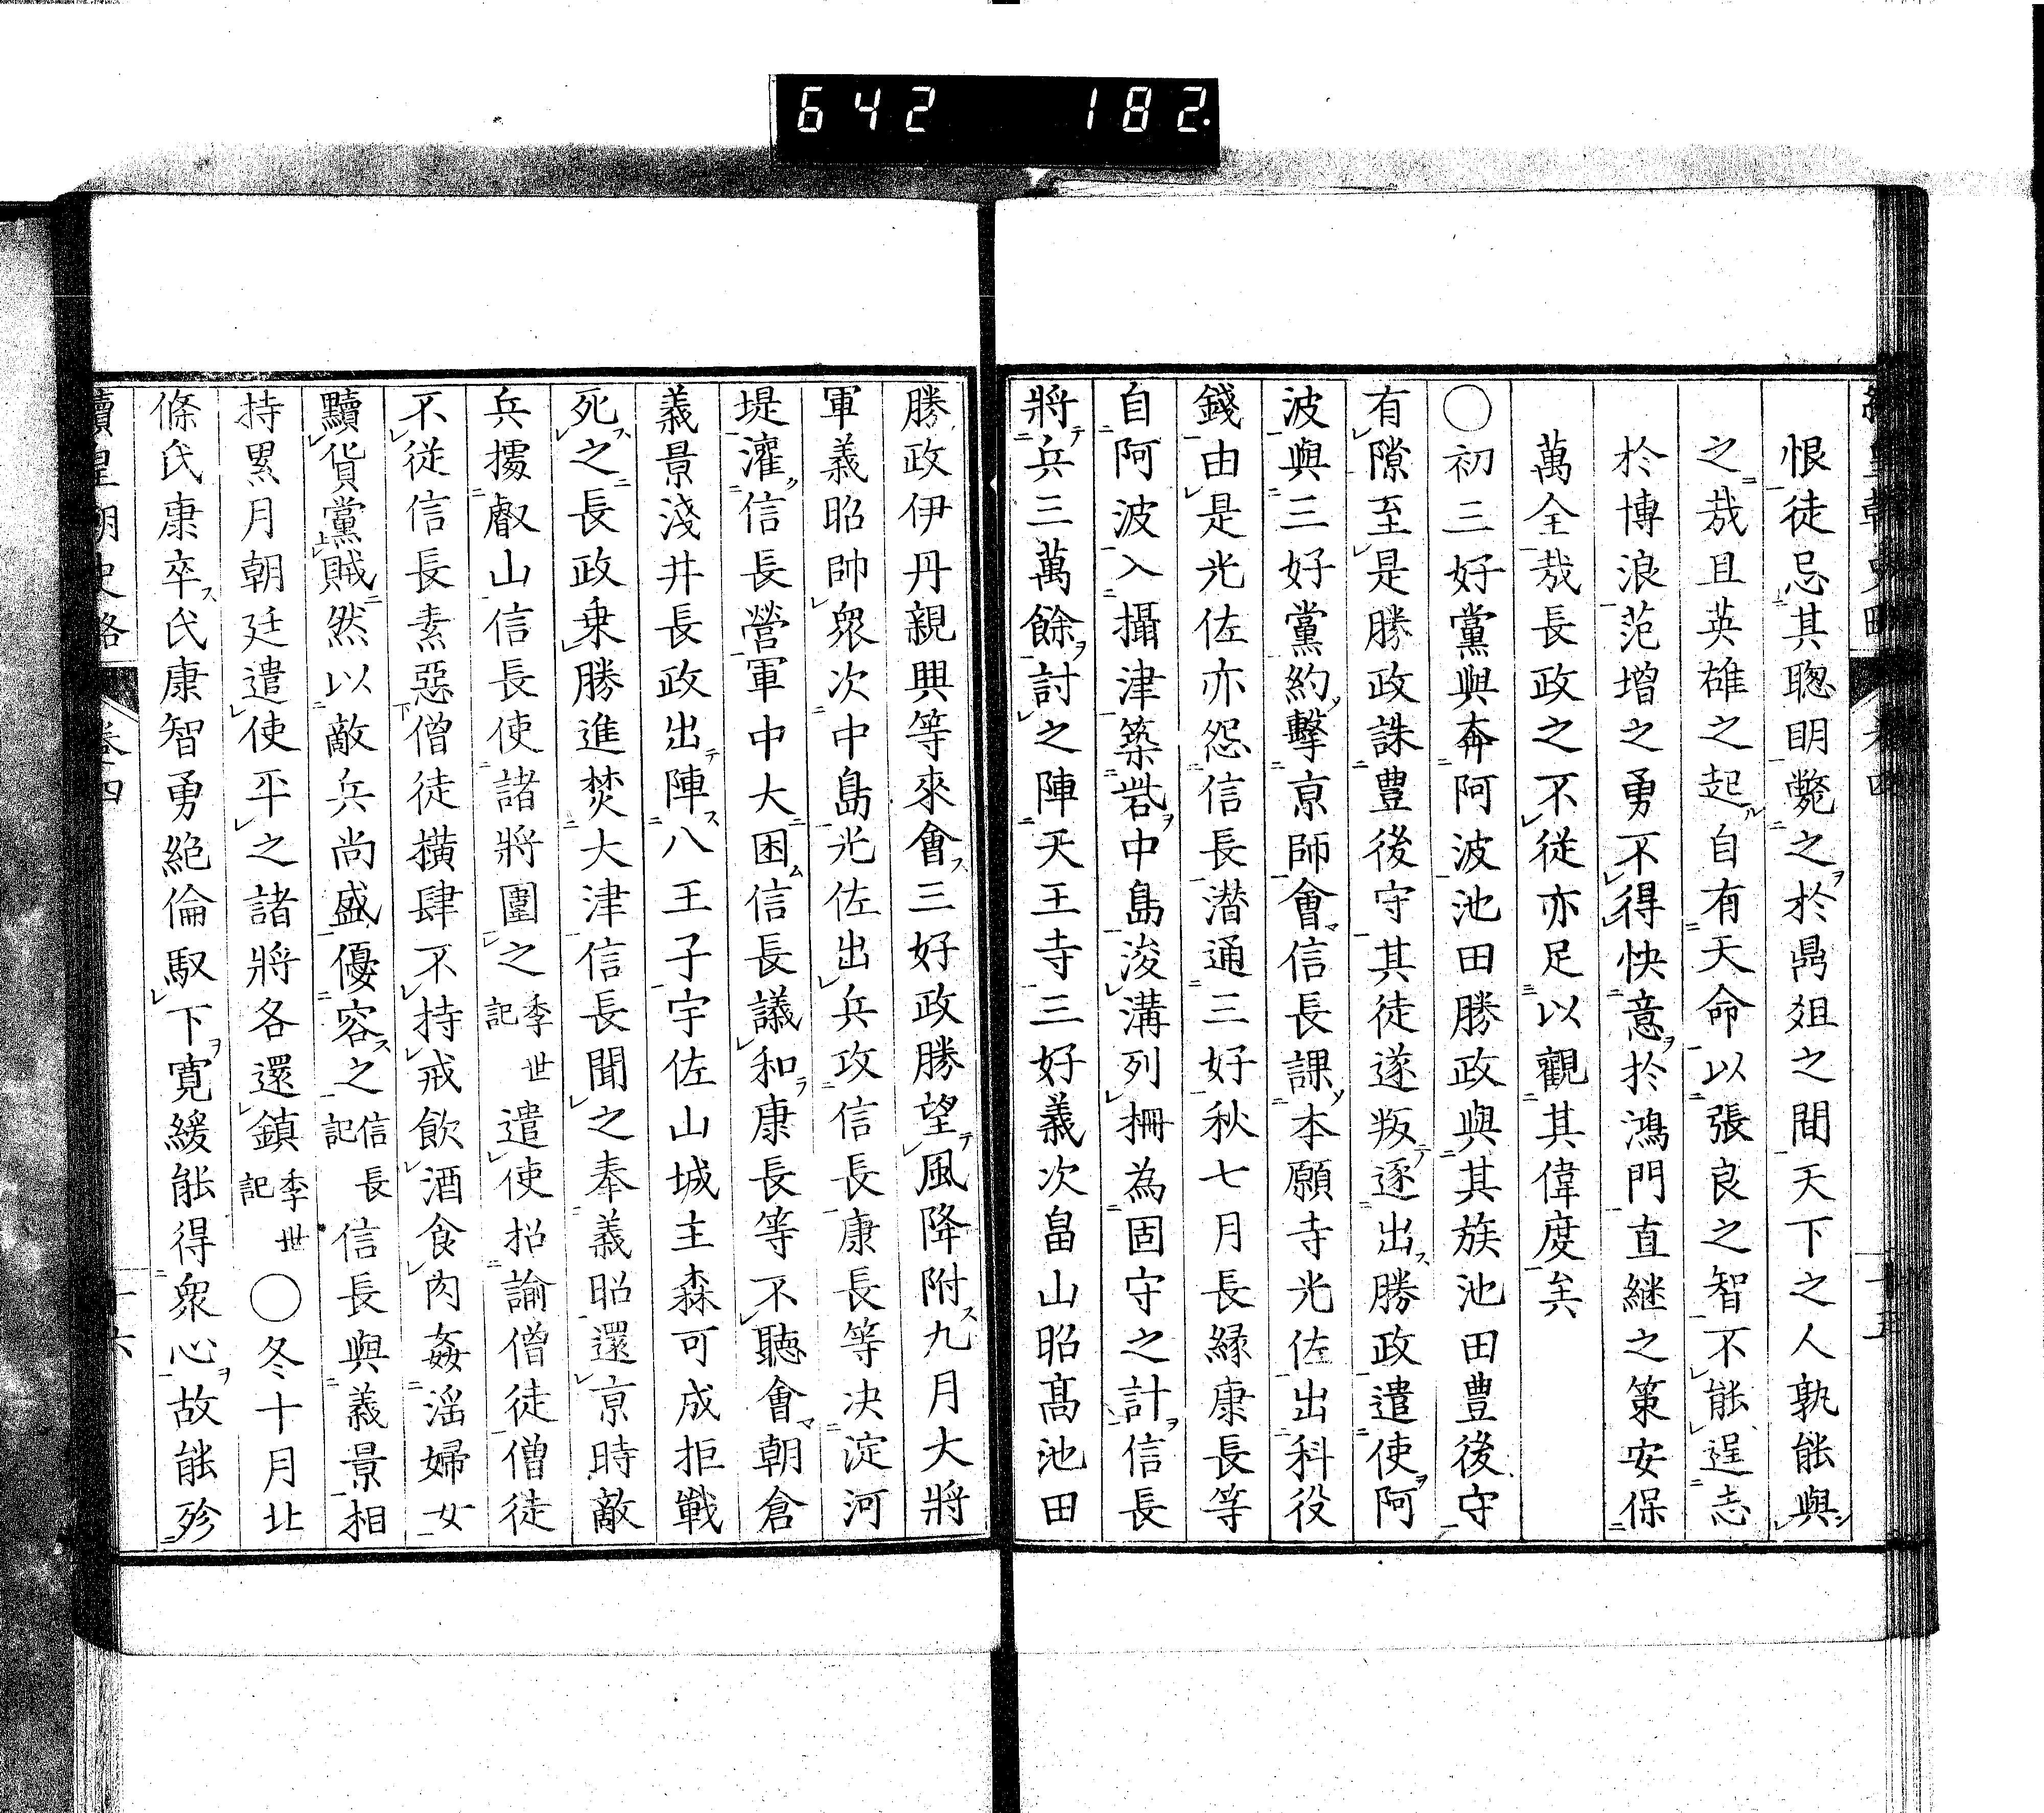 642 182
恨徒忌其聰明斃之於鼎俎之間天下之人孰能與
之哉且英雄之起自有天命以張良之智不能逞志
於博浪范增之勇不得快意於鴻門直継之策安保
萬全哉長政之不従亦足以觀其偉度矣
〇初三好黨與奔阿波池田勝政與其族池田豊後守
有隙至是勝政誅豊後守其徒遂叛逐出勝政遣使阿
波與三好黨約擊京師會信長課本願寺光佐出科役
錢由是光佐亦怨信長潜通三好秋七月長緣康長等
自阿波入攝津築砦中島浚溝列柵為固守之計信長
將兵三萬餘討之陣天王寺三好義次畠山昭髙池田
勝政伊丹親興等來會三好政勝望風降附九月大將
軍義昭帥衆次中島光佐出兵攻信長康長等决淀河
堤灌信長營軍中大困信長議和康長等不聴會朝倉
義景淺井長政出陣八王子宇佐山城主森可成拒戰
死之長政乗勝進焚大津信長聞之奉義昭還京時敵
兵據叡山信長使諸將圍之季世記遣使招諭僧徒僧徒
不従信長素惡僧徒擴肆不持戒飲酒食肉姦淫婦女
黷貨黨賊然以敵兵尚盛優容之信長記信長與義景相
持累月朝廷遣使平之諸將各還鎮季世記〇冬十月北
條氏康卒氏康智勇絶倫馭下寛緩能得衆心故能殄
續皇朝史略 卷四 十六